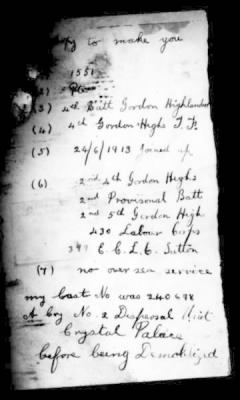 to make you
1551
(2)
(3) 4th Batt Gordon Highlanders
(4) 4th Gordon Highs T. F.
(5) 24/6/1913 Joined up
(6) 2nd 4th Gordon Highs
2nd Provisonal Batt
2nd 5th Gordon High
430 Labour Corps
399 E. C. L. C. Sutton
(7) no over sea service
my last No was 240698
A Coy No. 2 Dispersal Unit
Crystal Palace
before being Demobilized